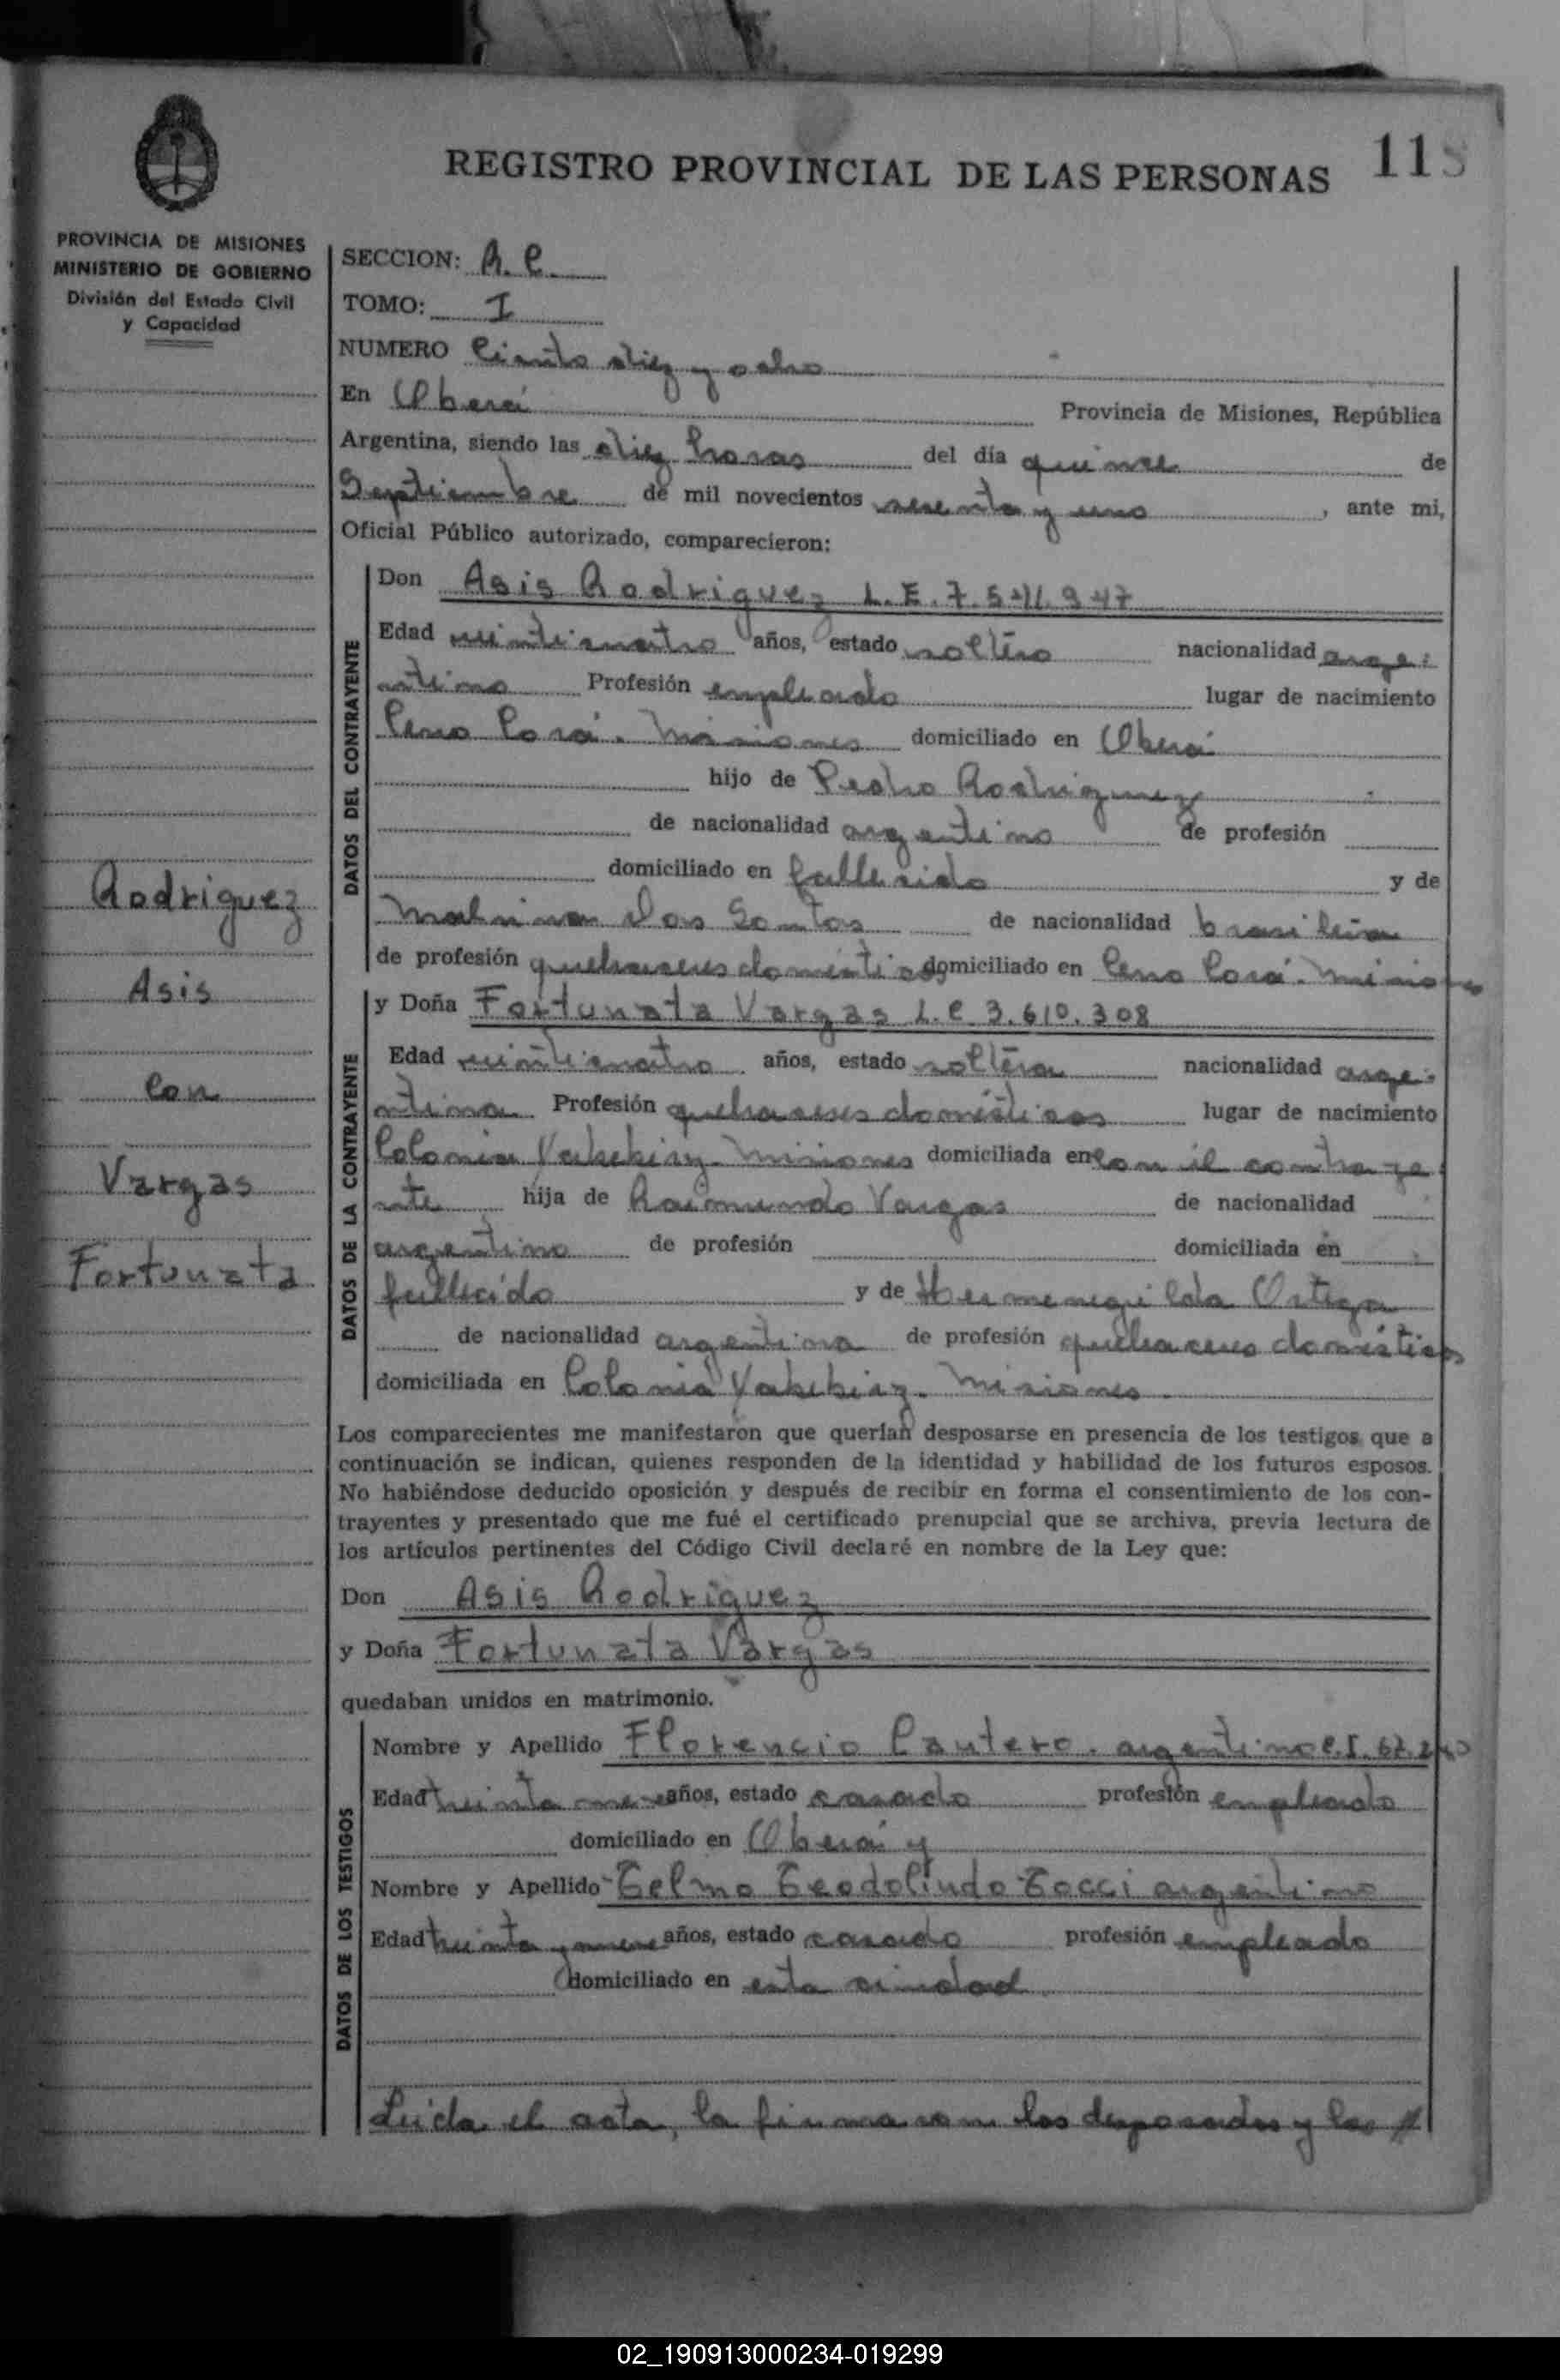 REGISTRO PROVINCIAL DE LAS PERSONAS 118
PROVINCIA DE MISIONES
MINISTERIO DE GOBIERNO
División del Estado Civil
y Capacidad
Rodriguez
Asis
Con
Vargas
Fortunata
SECCION: R. C.
TOMO: I
NUMERO Ciento diez y ocho
En Oberá Provincia de Misiones, República
Argentina, siendo las diez horas del día quince de
Septiembre de mil novecientos sesenta y uno, ante mi,
Oficial Público autorizado, comparecieron:
DATOS DEL CONTRAYENTE
Don Asis Rodriguez L.E. 7.541.947
Edad veinticuatro años, estado soltero nacionalidad arge-
ntino Profesión empleado lugar de nacimiento
Cerro Corá. Misiones domiciliado en Oberá
hijo de Pedro Rodriguez
de nacionalidad argentino de profesión
domiciliado en fallecido y de
Dos Santos de nacionalidad brasileña
de profesión quehaceres domésticos domiciliado en Cerro Corá. Misiones
DATOS DE LA CONTRAYENTE
y Doña Fortunata Vargas L.C. 3.610.308
Edad veinticuatro años, estado soltera nacionalidad arge-
ntina Profesión quehaceres domésticos lugar de nacimiento
Colonia Yabebiry. Misiones domiciliada en con el contraye
nte hija de Raimundo Vargas de nacionalidad
argentino de profesión domiciliada en
fallecido y de Hermenegilda Ortega
de nacionalidad argentina de profesión quehaceres domésticos
domiciliada en Colonia Yabebiry. Misiones
Los comparecientes me manifestaron que querían desposarse en presencia de los testigos que a
continuación se indican, quienes responden de la identidad y habilidad de los futuros esposos.
No habiéndose deducido oposición y después de recibir en forma el consentimiento de los con-
trayentes y presentado que me fué el certificado prenupcial que se archiva, previa lectura de
los artículos pertinentes del Código Civil declaré en nombre de la Ley que:
Don Asis Rodriguez
y Doña Fortunata Vargas
quedaban unidos en matrimonio.
DATOS DE LOS TESTIGOS
Nombre y Apellido Florencio Cantero. argentino C.I. 67.240
Edad treinta años, estado casado profesión empleado
domiciliado en Oberá y
Nombre y Apellido Telmo Teodolindo Tocci argentino
Edad treinta y nueve años, estado casado profesión empleado
domiciliado en esta ciudad
Leida el acta, la firman con los desposados y los
02_190913000234-019299